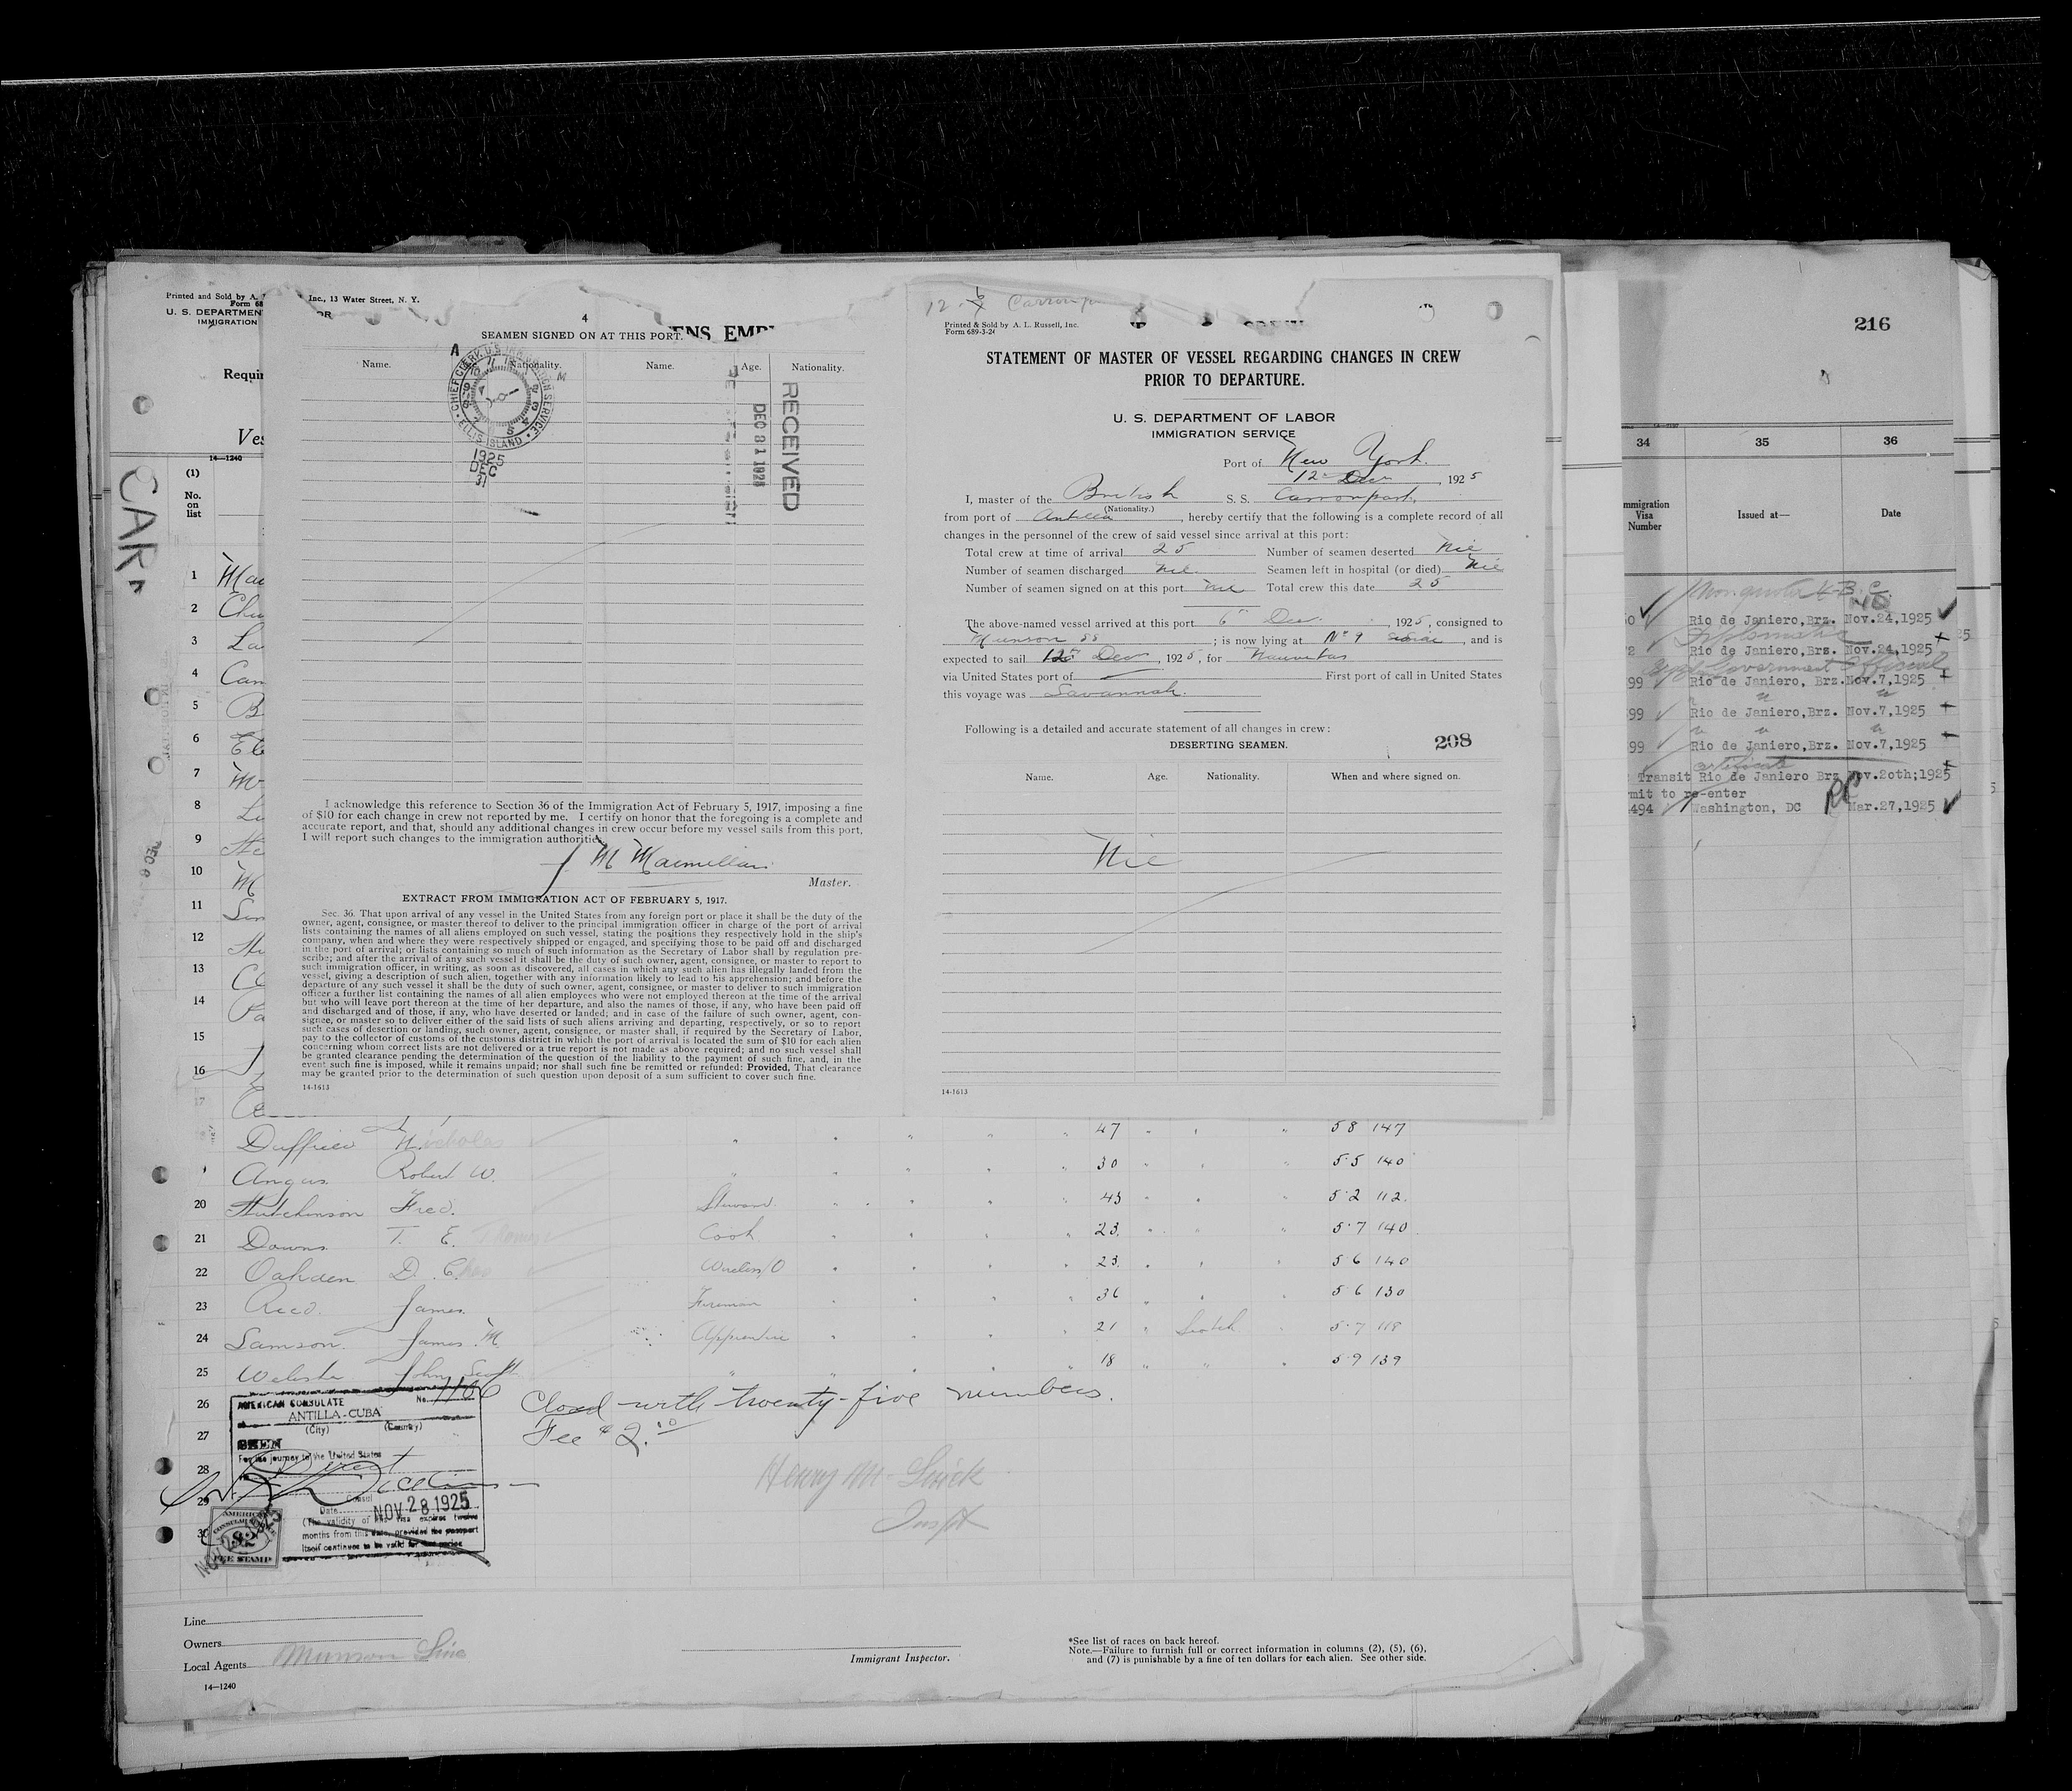 Printed and Sold by A.
Inc., 13 Water Street, N. Y.
Form 68
U. S. DEPARTMEN
OR
IMMIGRATION
Requir
Ves
14—1240
(1)
No.
on
list
CAR
4
SEAMEN SIGNED ON AT THIS PORT.
ENS EMP
Name.
Nationality.
Name.
Age.
Nationality.
CHIEF CLERK U.S. IMMIGRATION SERVICE
ELLIS ISLAND
1925
DEC
31
RECEIVED
I acknowledge this reference to Section 36 of the Immigration Act of February 5, 1917, imposing a fine
of $10 for each change in crew not reported by me. I certify on honor that the foregoing is a complete and
accurate report, and that, should any additional changes in crew occur before my vessel sails from this port,
I will report such changes to the immigration authorities
M Macmillan
Master.
EXTRACT FROM IMMIGRATION ACT OF FEBRUARY 5, 1917.
Sec. 36. That upon arrival of any vessel in the United States from any foreign port or place it shall be the duty of the
owner, agent, consignee, or master thereof to deliver to the principal immigration officer in charge of the port of arrival
lists containing the names of all aliens employed on such vessel, stating the positions they respectively hold in the ship's
company, when and where they were respectively shipped or engaged, and specifying those to be paid off and discharged
in the port of arrival; or lists containing so much of such information as the Secretary of Labor shall by regulation pre-
scribe; and after the arrival of any such vessel it shall be the duty of such owner, agent, consignee, or master to report to
such immigration officer, in writing, as soon as discovered, all cases in which any such alien has illegally landed from the
vessel, giving a description of such alien, together with any information likely to lead to his apprehension; and before the
departure of any such vessel it shall be the duty of such owner, agent, consignee, or master to deliver to such immigration
officer a further list containing the names of all alien employees who were not employed thereon at the time of the arrival
but who will leave port thereon at the time of her departure, and also the names of those, if any, who have been paid off
and discharged and of those, if any, who have deserted or landed; and in case of the failure of such owner, agent, con-
signee, or master so to deliver either of the said lists of such aliens arriving and departing, respectively, or so to report
such cases of desertion or landing, such owner, agent, consignee, or master shall, if required by the Secretary of Labor,
pay to the collector of customs of the customs district in which the port of arrival is located the sum of $10 for each alien
concerning whom correct lists are not delivered or a true report is not made as above required; and no such vessel shall
be granted clearance pending the determination of the question of the liability to the payment of such fine, and, in the
event such fine is imposed, while it remains unpaid; nor shall such fine be remitted or refunded: Provided, That clearance
may be granted prior to the determination of such question upon deposit of a sum sufficient to cover such fine.
14-1613
Printed & Sold by A. L. Russell, Inc.
Form 689-3-24
STATEMENT OF MASTER OF VESSEL REGARDING CHANGES IN CREW
PRIOR TO DEPARTURE.
U. S. DEPARTMENT OF LABOR
IMMIGRATION SERVICE
Port of New York.
12 Dec , 1925
I, master of the British S. S. Carronpark,
(Nationality.)
from port of Antilla , hereby certify that the following is a complete record of all
changes in the personnel of the crew of said vessel since arrival at this port:
Total crew at time of arrival 25 Number of seamen deserted Nil
Number of seamen discharged nil. Seamen left in hospital (or died) Nil
Number of seamen signed on at this port nil Total crew this date 25
The above-named vessel arrived at this port 6th Dec. , 1925, consigned to
Munson SS ; is now lying at No 9 , and is
expected to sail 12th Dec , 1925, for Nuevitas
via United States port of First port of call in United States
this voyage was Savannah.
Following is a detailed and accurate statement of all changes in crew:
DESERTING SEAMEN.
208
Name. Age. Nationality. When and where signed on.
Nil
14-1613
216
34 35 36
mmigration
Visa
Number
Issued at—
Date
Non quota
Rio de Janiero,Brz. Nov.24,1925
Diplomatic
Rio de Janiero,Brz. Nov.24,1925
Government Official
99 Rio de Janiero, Brz.Nov.7,1925
99 Rio de Janiero,Brz. Nov.7,1925
99 Rio de Janiero,Brz. Nov.7,1925
certificate
Transit Rio de Janiero Brz Nov.20th;1925
mit to re-enter
494 Washington, DC Mar.27,1925
1 Mac
2 Chu
3 La
4 Cam
5 B
6 Ele
7 M
8 Lu
9 He
10 M
11 Sin
12
13
14 Pa
15
16
Duffield Nicholas 47 " 58 147
Angus Robert W. 30 " 5·5 140
20 Hutchinson Fred. Steward. 43 " 5·2 112.
21 Downs T. E. Thomas Cook. 23. " 5·7 140
22 Oakden D. Chas Wireless/O 23. " 5 6 140
23 Reed. James. Fireman 36 " 5 6 130
24 Samson. James M. Apprentice 21 " Scotch. 5·7 118
25 Webster John Scott " 18 " " 5 9 139
26 Closed with twenty-five numbers.
27 Fee $2.00
28
29
AMERICAN CONSULATE
No. 1186
ANTILLA-CUBA
(City) (Country)
SEEN
For the journey to the United States
Direct
Consul
Date NOV 28 1925
(The validity of this visa expires twelve
months from this date, provided the passport
itself continues to be valid for that period
AMERICAN
CONSULAR SERVICE
FEE STAMP
Henry M.
Inspt
Line
Owners
Local Agents Munson Line
14—1240
Immigrant Inspector.
*See list of races on back hereof.
Note.—Failure to furnish full or correct information in columns (2), (5), (6),
and (7) is punishable by a fine of ten dollars for each alien. See other side.